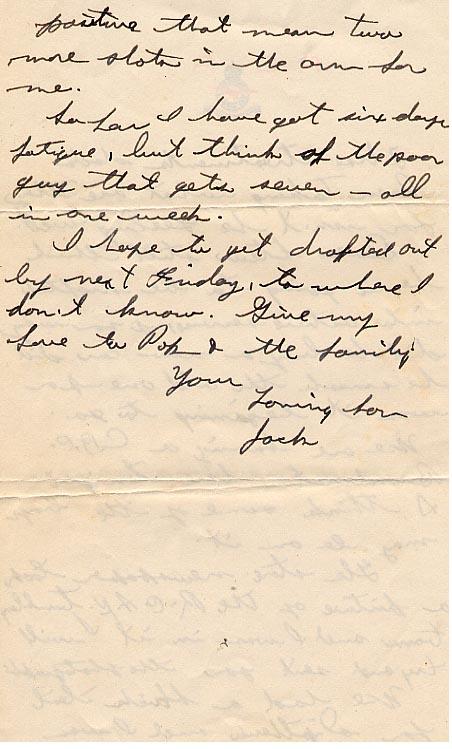 positive that mean two
more slots in the arm for
me.
So far I have got six days
fatigue, but think of the poor
guy that gets seven - all
in one week.
I hope to get drafted out
by next Friday, to where I
don't know. Give my
love to Pop & the family
Your
Loving Son
Jack